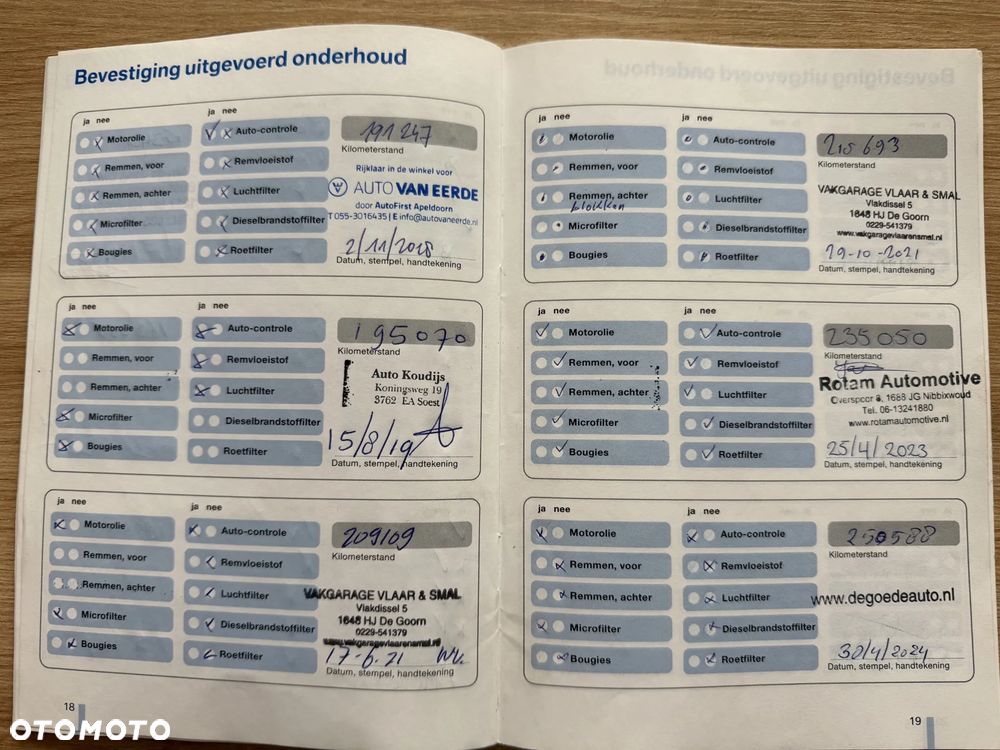 Bevestiging uitgevoerd onderhoud
ja nee
ja nee
Motorolie
Auto-controle
191 247
Kilometerstand
Remmen, voor
Remvloeistof
Rijklaar in de winkel voor
AUTO VAN EERDE
Remmen, achter
Luchtfilter
door AutoFirst Apeldoorn
Microfilter
Dieselbrandstoffilter
T 055-3016435 | E info@autovaneerde.nl
Bougies
Roetfilter
Datum, stempel, handtekening
ja nee
ja nee
Motorolie
Auto-controle
195070
Kilometerstand
Remmen, voor
Remvloeistof
Auto Koudijs
Remmen, achter
Luchtfilter
Koningsweg 19
3762 EA Soest
Microfilter
Dieselbrandstoffilter
15/8/19
Bougies
Roetfilter
Datum, stempel, handtekening
ja nee
ja nee
Motorolie
Auto-controle
209109
Kilometerstand
Remmen, voor
Remvloeistof
Remmen, achter
Luchtfilter
VAKGARAGE VLAAR & SMAL
Vlakdissel 5
Microfilter
Dieselbrandstoffilter
1648 HJ De Goorn
0229-541379
www.vakgaragevlaarensmal.nl
Bougies
Roetfilter
17-6-21
Datum, stempel, handtekening
18
ja nee
ja nee
Motorolie
Auto-controle
215693
Kilometerstand
Remmen, voor
Remvloeistof
Remmen, achter
blokken
Luchtfilter
VAKGARAGE VLAAR & SMAL
Vlakdissel 5
1648 HJ De Goorn
Microfilter
Dieselbrandstoffilter
0229-541379
www.vakgaragevlaarensmal.nl
Bougies
Roetfilter
29-10-2021
Datum, stempel, handtekening
ja nee
ja nee
Motorolie
Auto-controle
235050
Kilometerstand
Remmen, voor
Remvloeistof
Rotam Automotive
Remmen, achter
Luchtfilter
Overspoor 8, 1688 JG Nibbixwoud
Tel. 06-13241880
Microfilter
Dieselbrandstoffilter
www.rotamautomotive.nl
Bougies
Roetfilter
25/4/2023
Datum, stempel, handtekening
ja nee
ja nee
Motorolie
Auto-controle
250588
Kilometerstand
Remmen, voor
Remvloeistof
Remmen, achter
Luchtfilter
www.degoedeauto.nl
Microfilter
Dieselbrandstoffilter
30/4/2024
Bougies
Roetfilter
Datum, stempel, handtekening
19
OTOMOTO